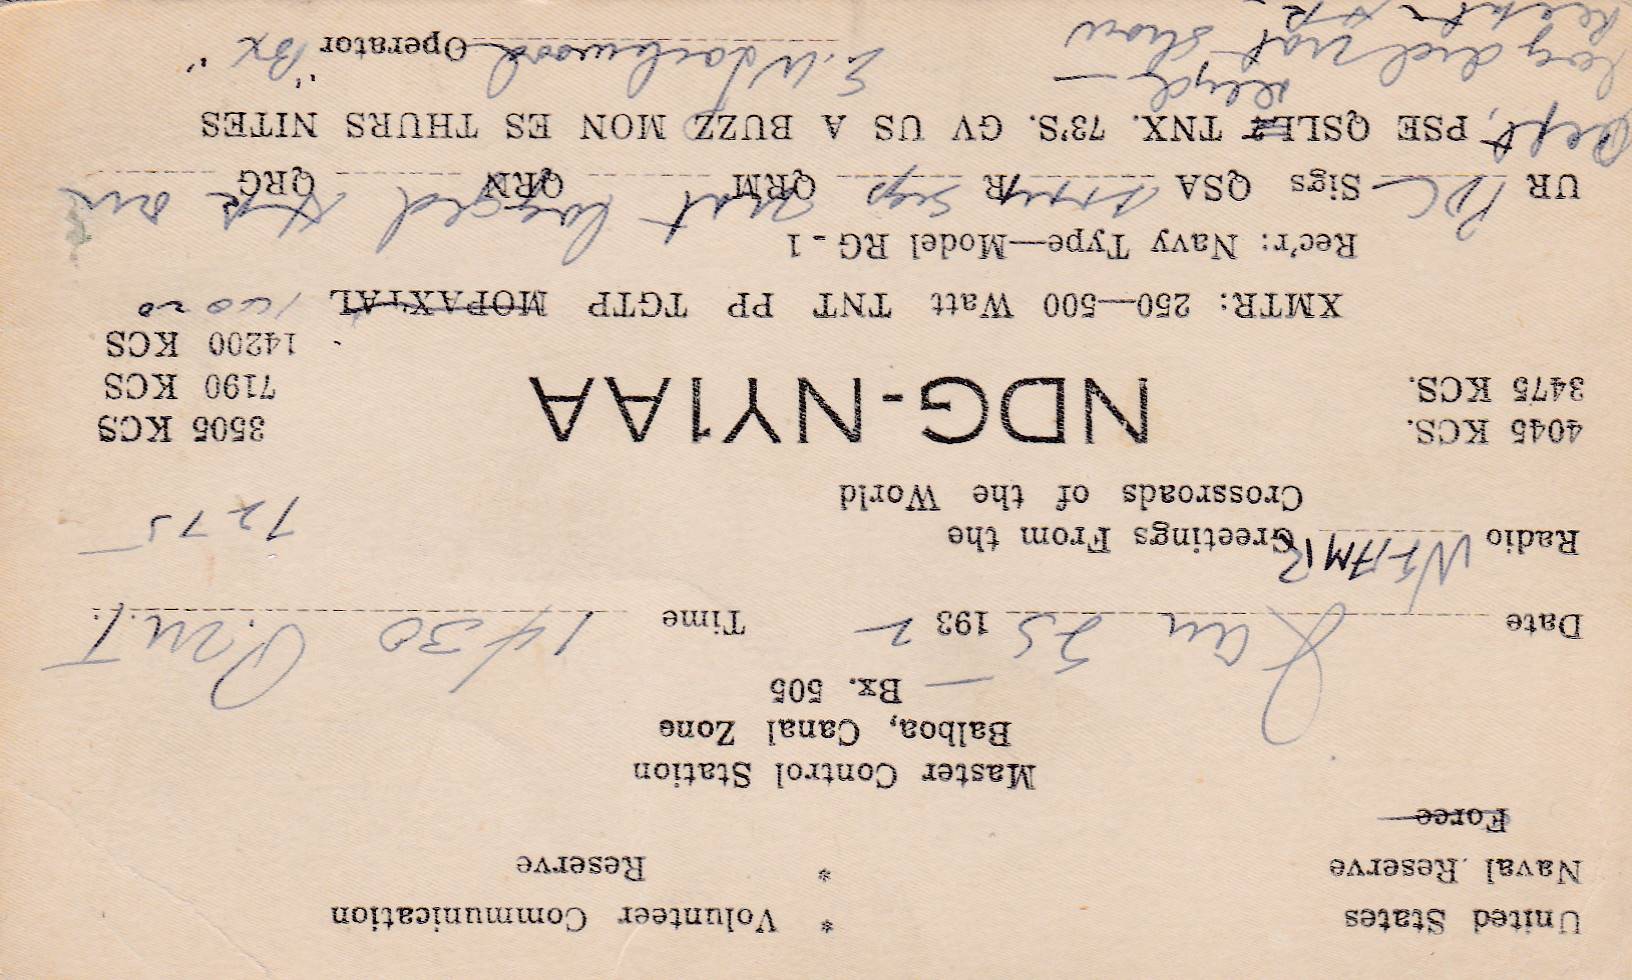 United States * Volunteer Communication
Naval Reserve * Reserve
Force
Master Control Station
Balboa, Canal Zone
Bx. 505
Date Jan 25 1932 Time 1430 P.M.
Radio Greetings From the 7275
Crossroads of the World
4045 KCS. NDG-NY1AA 3505 KCS
3475 KCS. 7190 KCS
14200 KCS
XMTR: 250—500 Watt TNT PP TGTP MOPAXTAL
Rec'r: Navy Type—Model RG-1
UR PDC Sigs QSA R QRM QRN QRG
PSE QSL TNX. 73'S. GV US A BUZZ MON ES THURS NITES
Operator "Bx"
log did not show